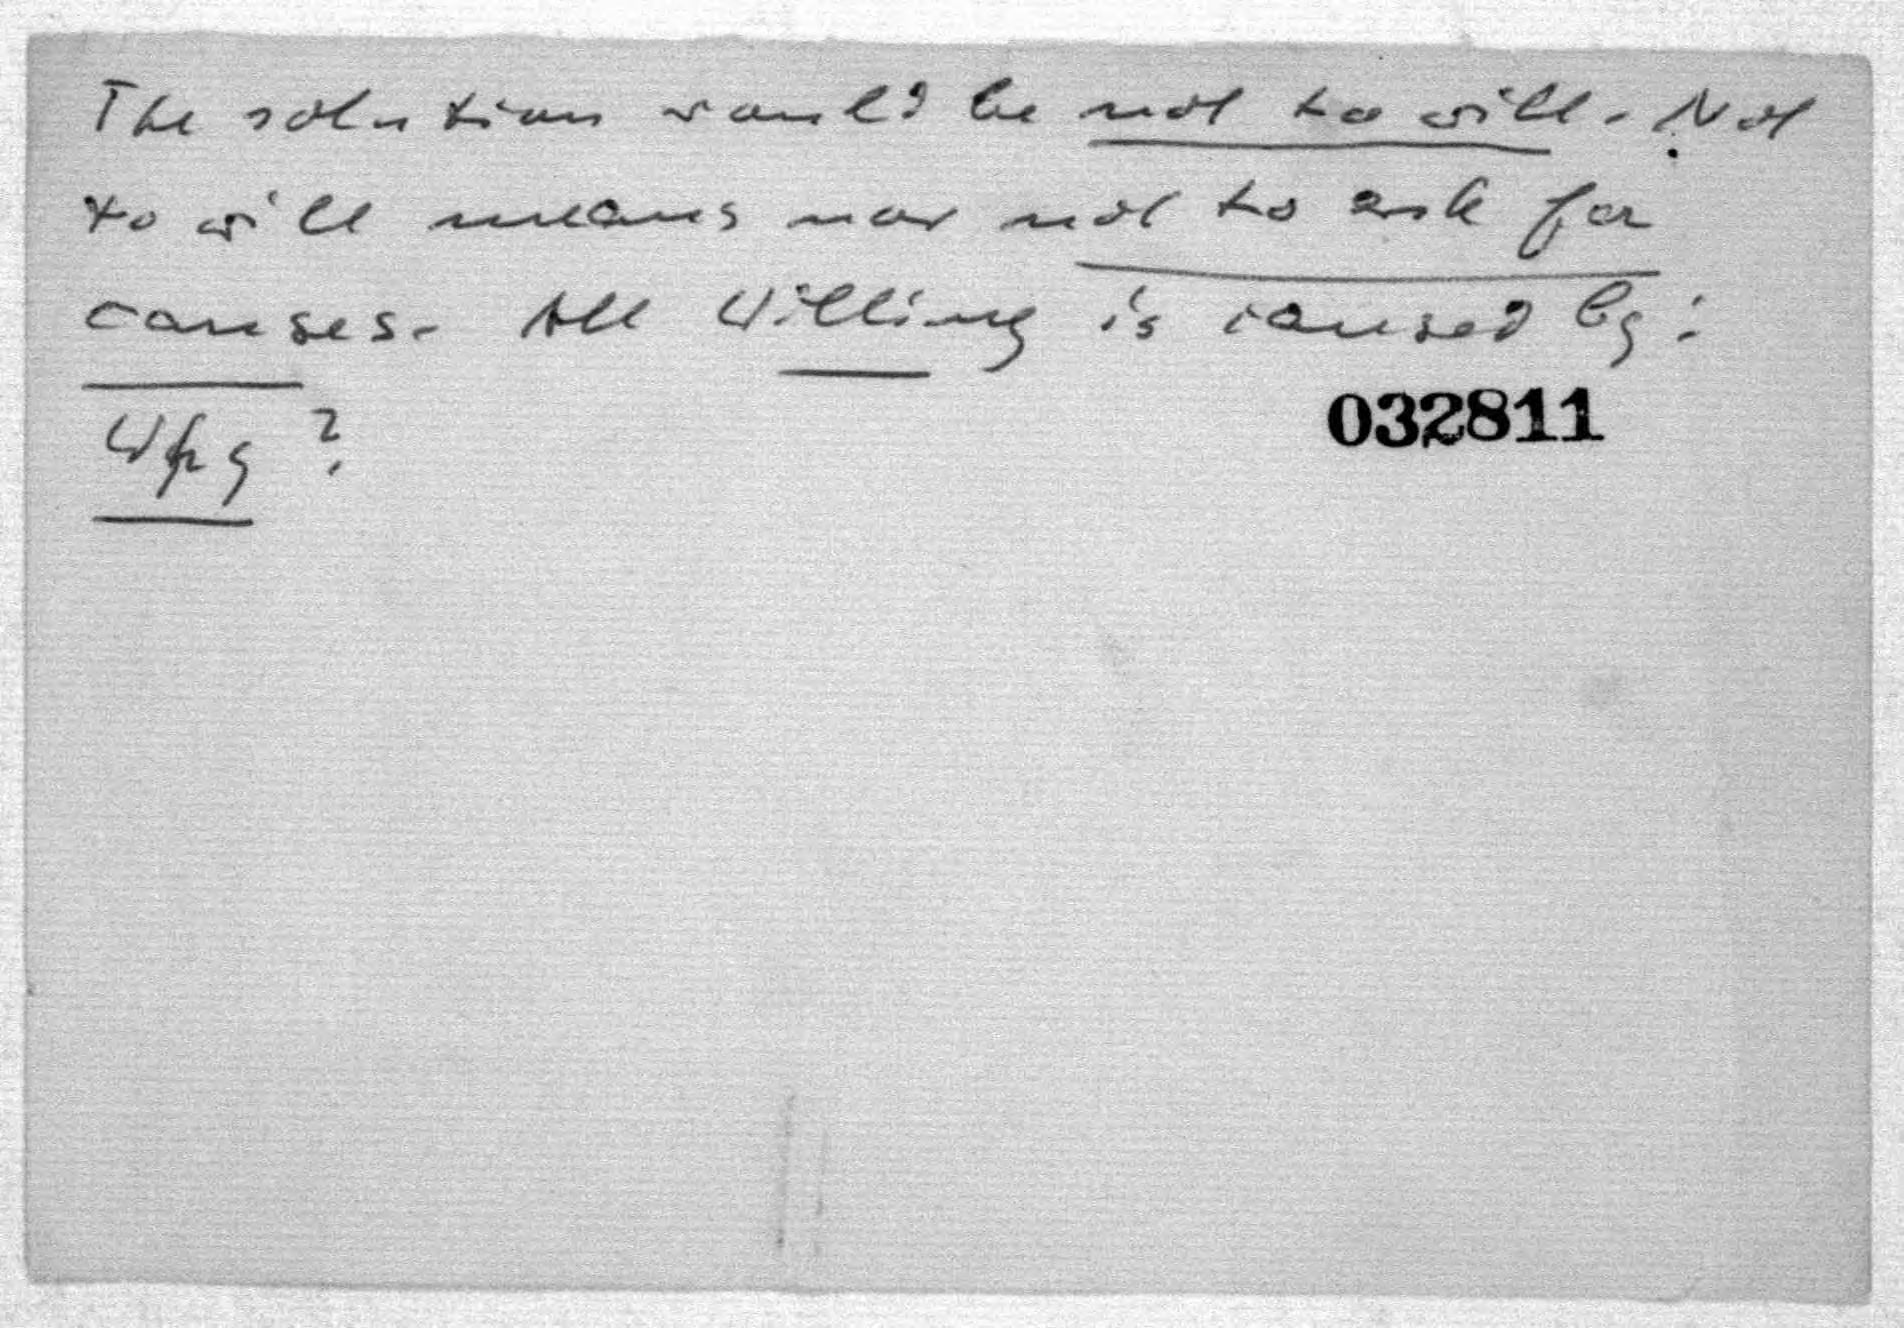 The solution would be not to will. Not
to will means now not to ask for
causes. All Willing is caused by:
Why?
032811